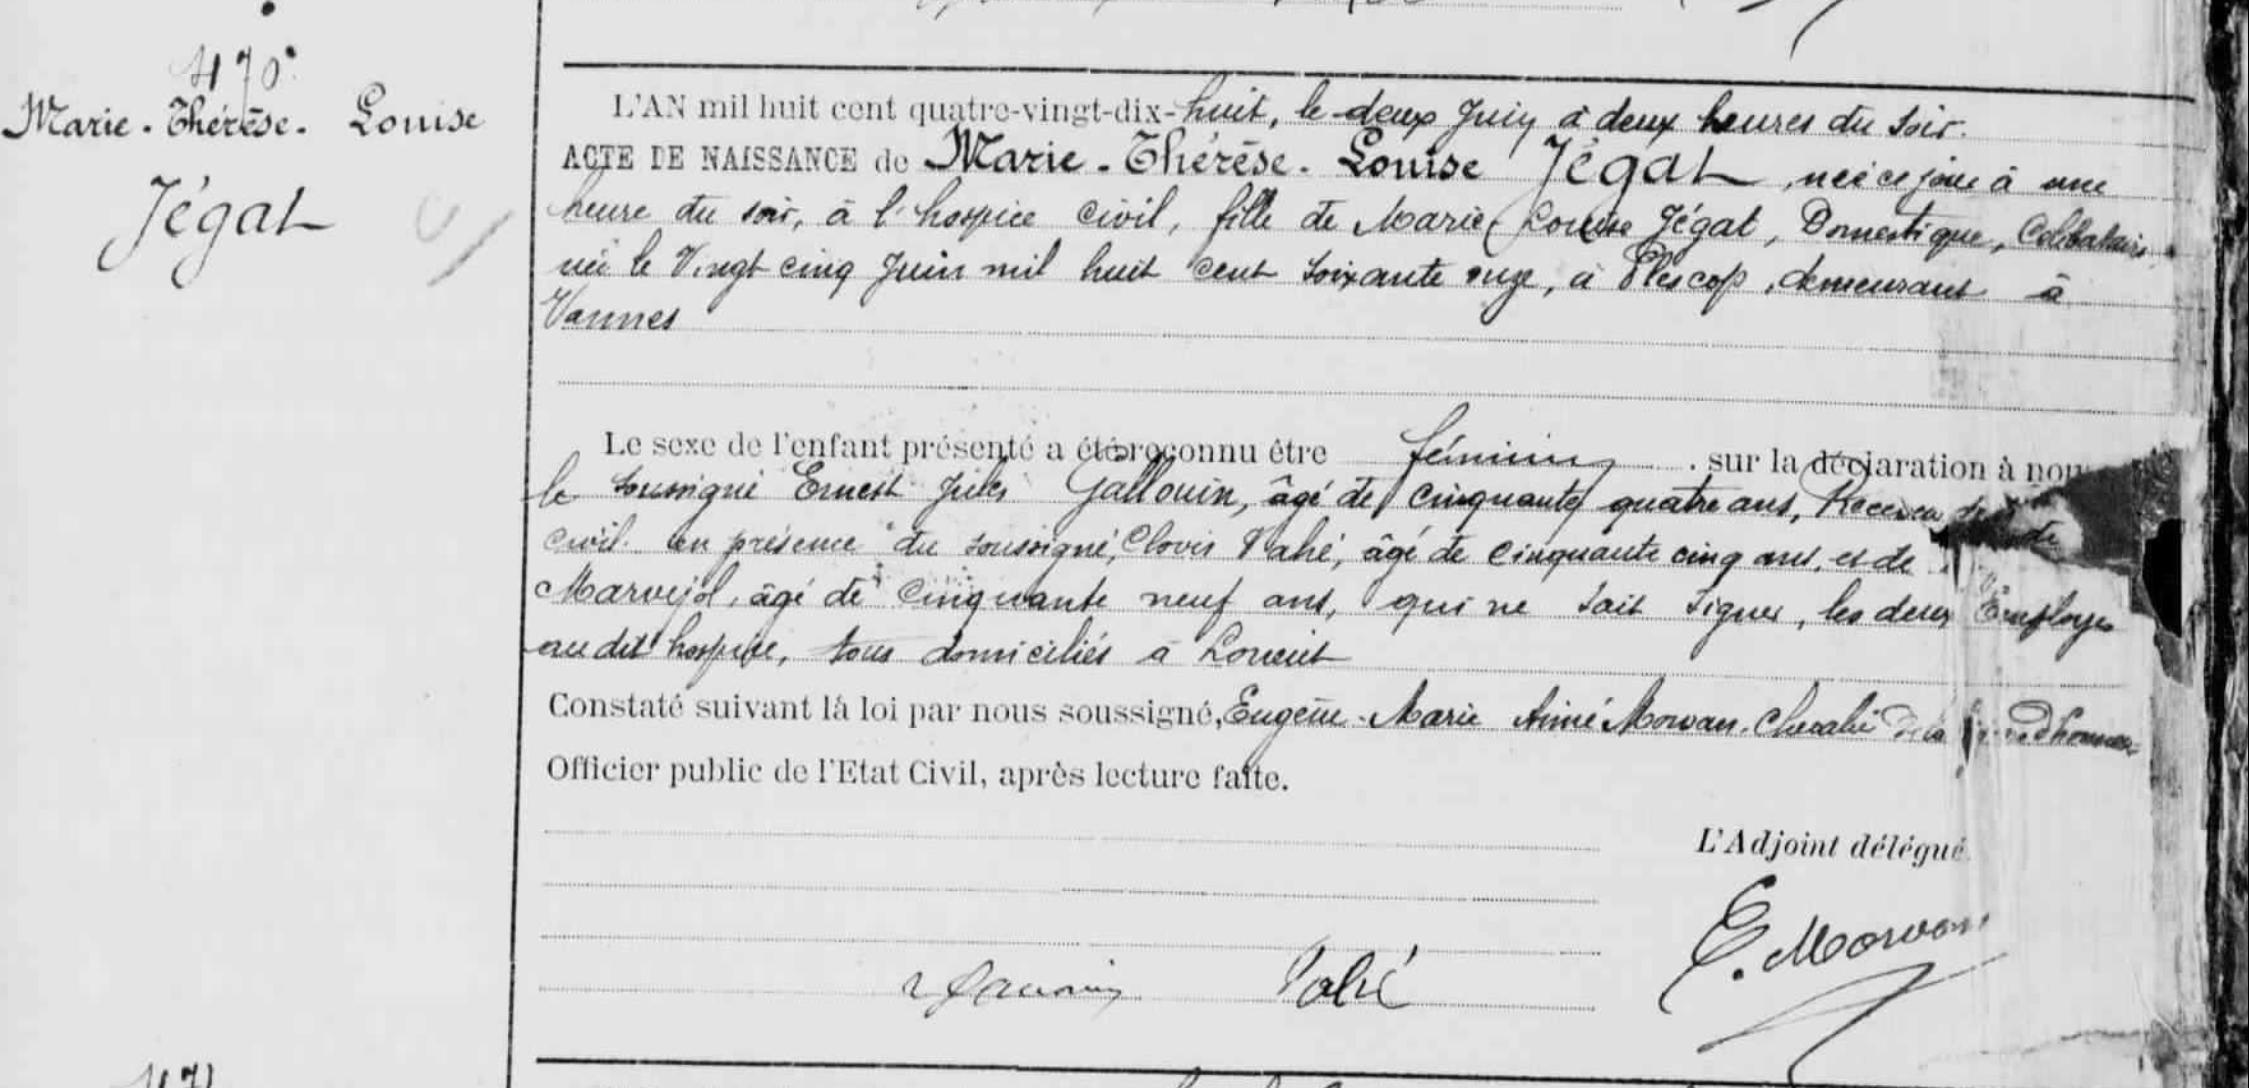 470
Marie-Thérèse-Louise
Jégat
L'AN mil huit cent quatre-vingt-dix-huit, le deux Juin à deux heures du soir.
ACTE DE NAISSANCE de Marie-Thérèse-Louise Jégat, née ce jour à une
heure du soir, à l'hospice civil, fille de Marie Louise Jégat, Domestique, Célibataire,
née le Vingt cinq Juin mil huit cent soixante onze, à Plescop, demeurant à
Vannes
Le sexe de l'enfant présenté a été reconnu être féminin, sur la déclaration à nous
le soussigné Ernest Jules Gallouin, âgé de cinquante quatre ans, Receveur de
civil en présence du soussigné, Clovis Pahé, âgé de cinquante cinq ans, et de
Marvejol, âgé de cinquante neuf ans, qui ne sait signer, les deux Employés
audit hospice, tous domiciliés à Lorient
Constaté suivant la loi par nous soussigné, Eugène-Marie Aimé Morvan, Chevalier de la d'honneur
Officier public de l'Etat Civil, après lecture faite.
L'Adjoint délégué
E. Morvan
Pahé
471